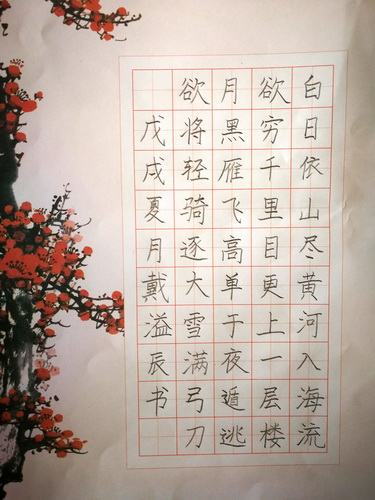 白日依山尽黄河入海流
欲穷千里目更上一层楼
月黑雁飞高单于夜遁逃
欲将轻骑逐大雪满弓刀
戊戌夏月戴溢辰书